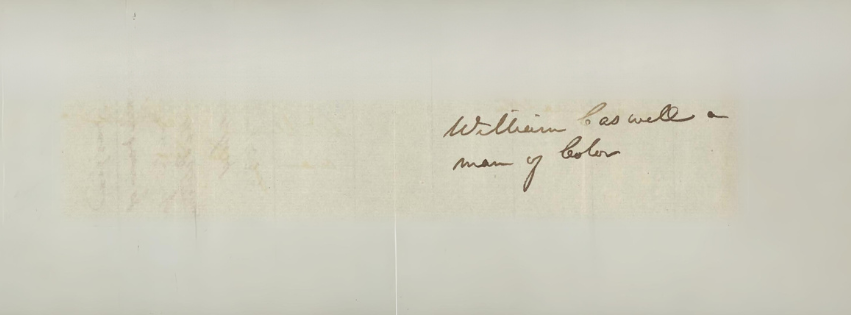 William Caswell a
man of Color